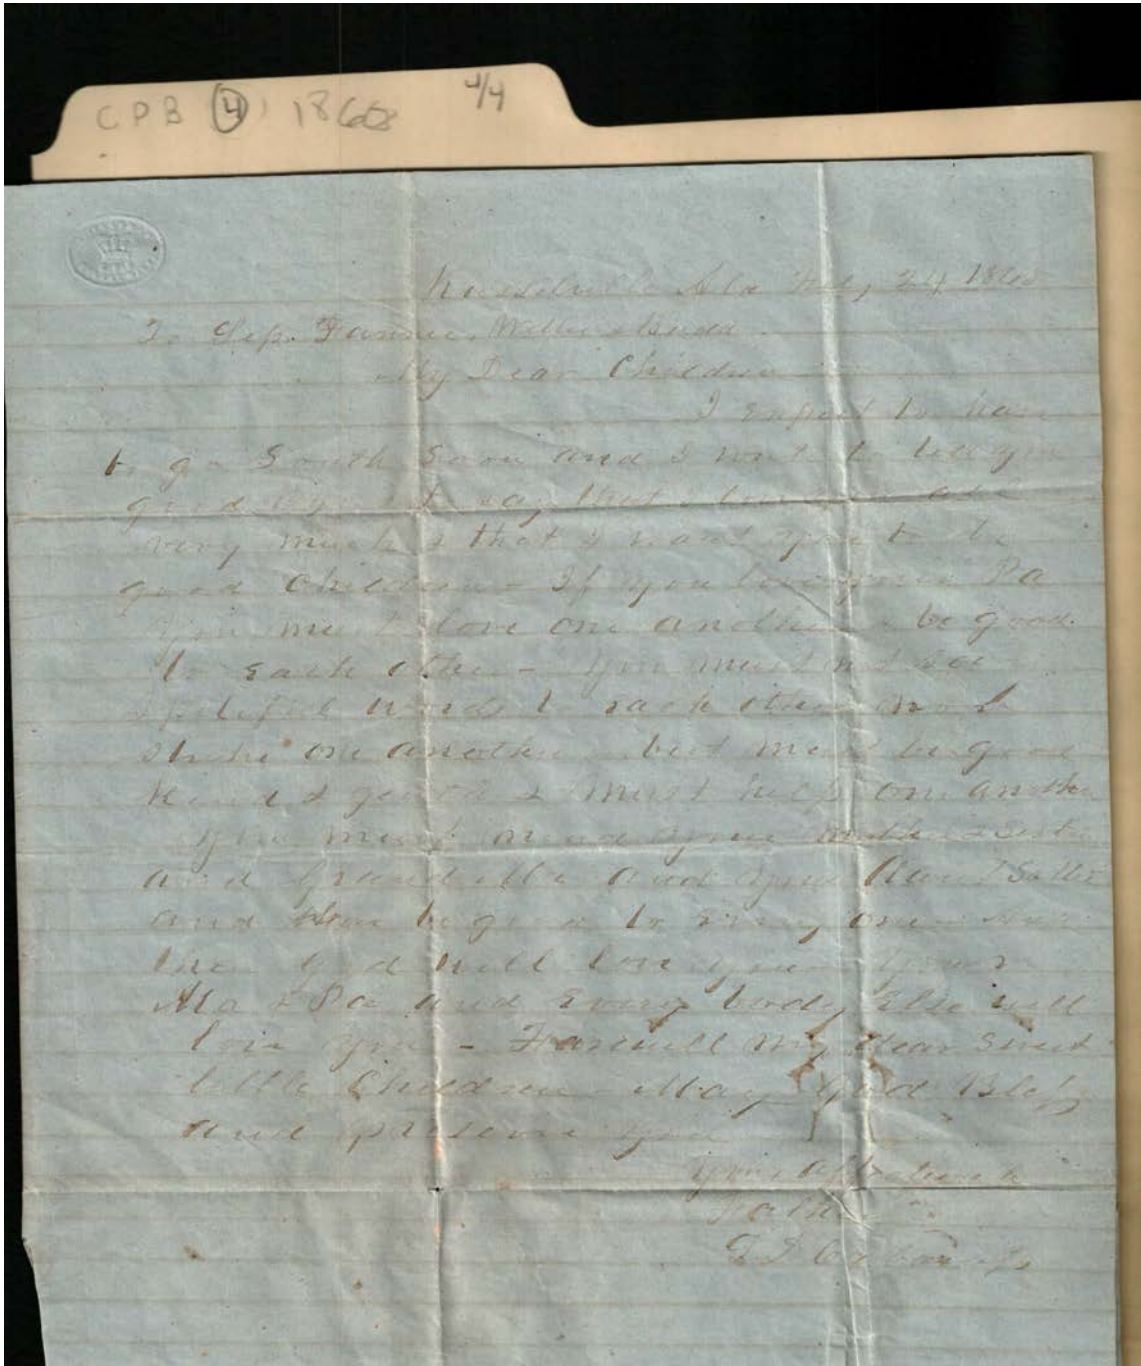 CPB 4 1868 4/4
Ala 24
To Fannie, Willie & Budd
My Dear Children
I expect to have
to go South Soon and I want to tell you
good & say that I love you all
very much & that I want you to be
good Children - If you love your Pa
you must love one another & be good
to Each other - You must not
spiteful words to each other not
strike one another but must be good
Kind & gentle & must help one another
You must mind your mother
and Grand Ma and your Aunt Sallie
and be good to Every one -
then God will love you your
Ma & Pa and Every body Else will
love you - Farewell My dear Sweet
little Children - May God Bless
and preserve you
Your affectionate
Father